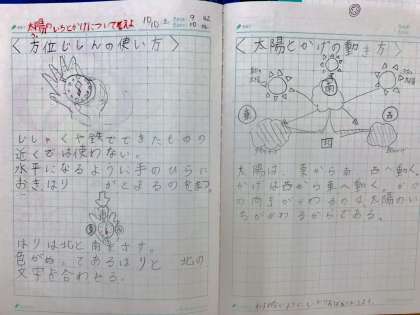 太陽のいちとかげについて考えよ
10/10
〈方位じしんの使い方〉
じしゃくや鉄でできたものの
近くでは使わない。
水平になるように手のひらに
おき、はり がとまるのをまつ。
はりは北と南をさす。
色がぬってあるはりと 北の
文字を合わせる。
〈太陽とかげの動き方〉
太陽
南
東
西
太陽は 東から南 西へ動く。
かげは西から東へ動く。
の向きがかわるのは、太陽のい
ちがかわるからである。